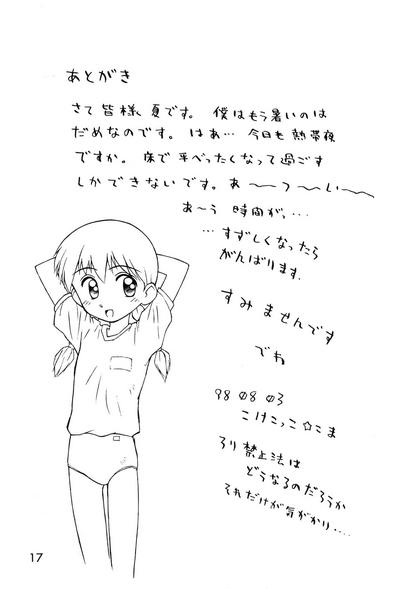 あとがき
さて 皆様、夏です。 僕はもう暑いのは
だめなのです。 はぁ… 今日も 熱帯夜
ですか。 床で 平べったくなって過ごす
しかできないです。 あ〜〜つ〜い〜〜
あ〜う 時間がっ…
… すずしくなったら
がんばります.
すみませんです
でわ
98 08 03
こけこっこ☆こま
ろり禁止法は
どうなるのだろうか
それだけが気がかり‥‥
17